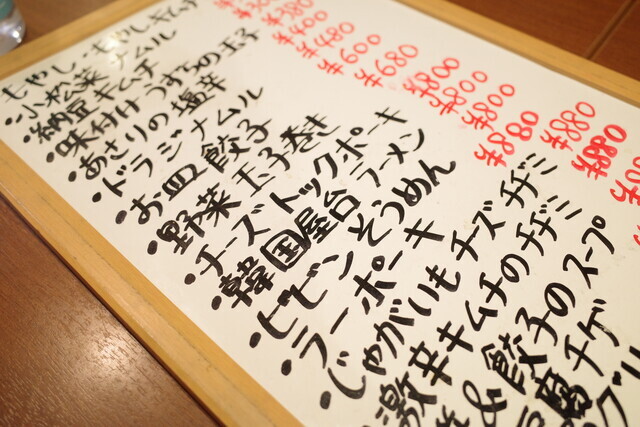 もやし・もやしキムチ
・小松菜ナムル
・納豆キムチ
・味付けうずらの玉子
・あさりの塩辛
・ドラジナムル
・お皿餃子
・野菜玉子巻き
・チーズトッポーキ
・韓国屋台ラーメン
・ビビンそうめん
・ラーポーキ
・じゃがいもチーズチヂミ
激辛キムチのチヂミ
&餃子のスープ
腐チゲ
¥380
¥400
¥480
¥600
¥680
¥800
¥800
¥800
¥880
¥880
¥880